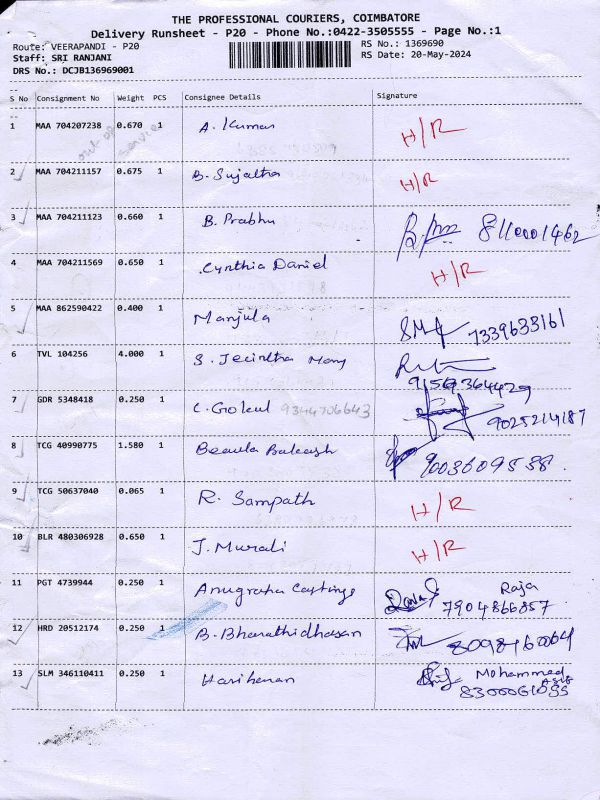 THE PROFESSIONAL COURIERS, COIMBATORE
Delivery Runsheet - P20 - Phone No.:0422-3505555 - Page No.:1
Route: VEERAPANDI - P20 RS No.: 1369690
Staff: SRI RANJANI RS Date: 20-May-2024
DRS No.: DCJB136969001
S No Consignment No Weight PCS Consignee Details Signature
1 MAA 704207238 0.670 1 A. Kumar H/R
out of service
2 MAA 704211157 0.675 1 B. Sujatha H/R
3 MAA 704211123 0.660 1 B. Prabhu 8110001462
4 MAA 704211569 0.650 1 Cynthia Daniel H/R
5 MAA 862590422 0.400 1 Manjula 7339633161
6 TVL 104256 4.000 1 S. Jecintha Mary
9156364429
7 GDR 5348418 0.250 1 C. Gokul 9344706643 9025214187
8 TCG 40990775 1.580 1 Beaula Prakash 9003609538.
9 TCG 50637040 0.065 1 R. Sampath H/R
10 BLR 480306928 0.650 1 J. Murali H/R
11 PGT 4739944 0.250 1 Anugraha Castings Raja
7904866857
12 HRD 20512174 0.250 1 B. Bharathidhasan 8098460064
13 SLM 346110411 0.250 1 Hariharan Mohammed Asif
8300061055